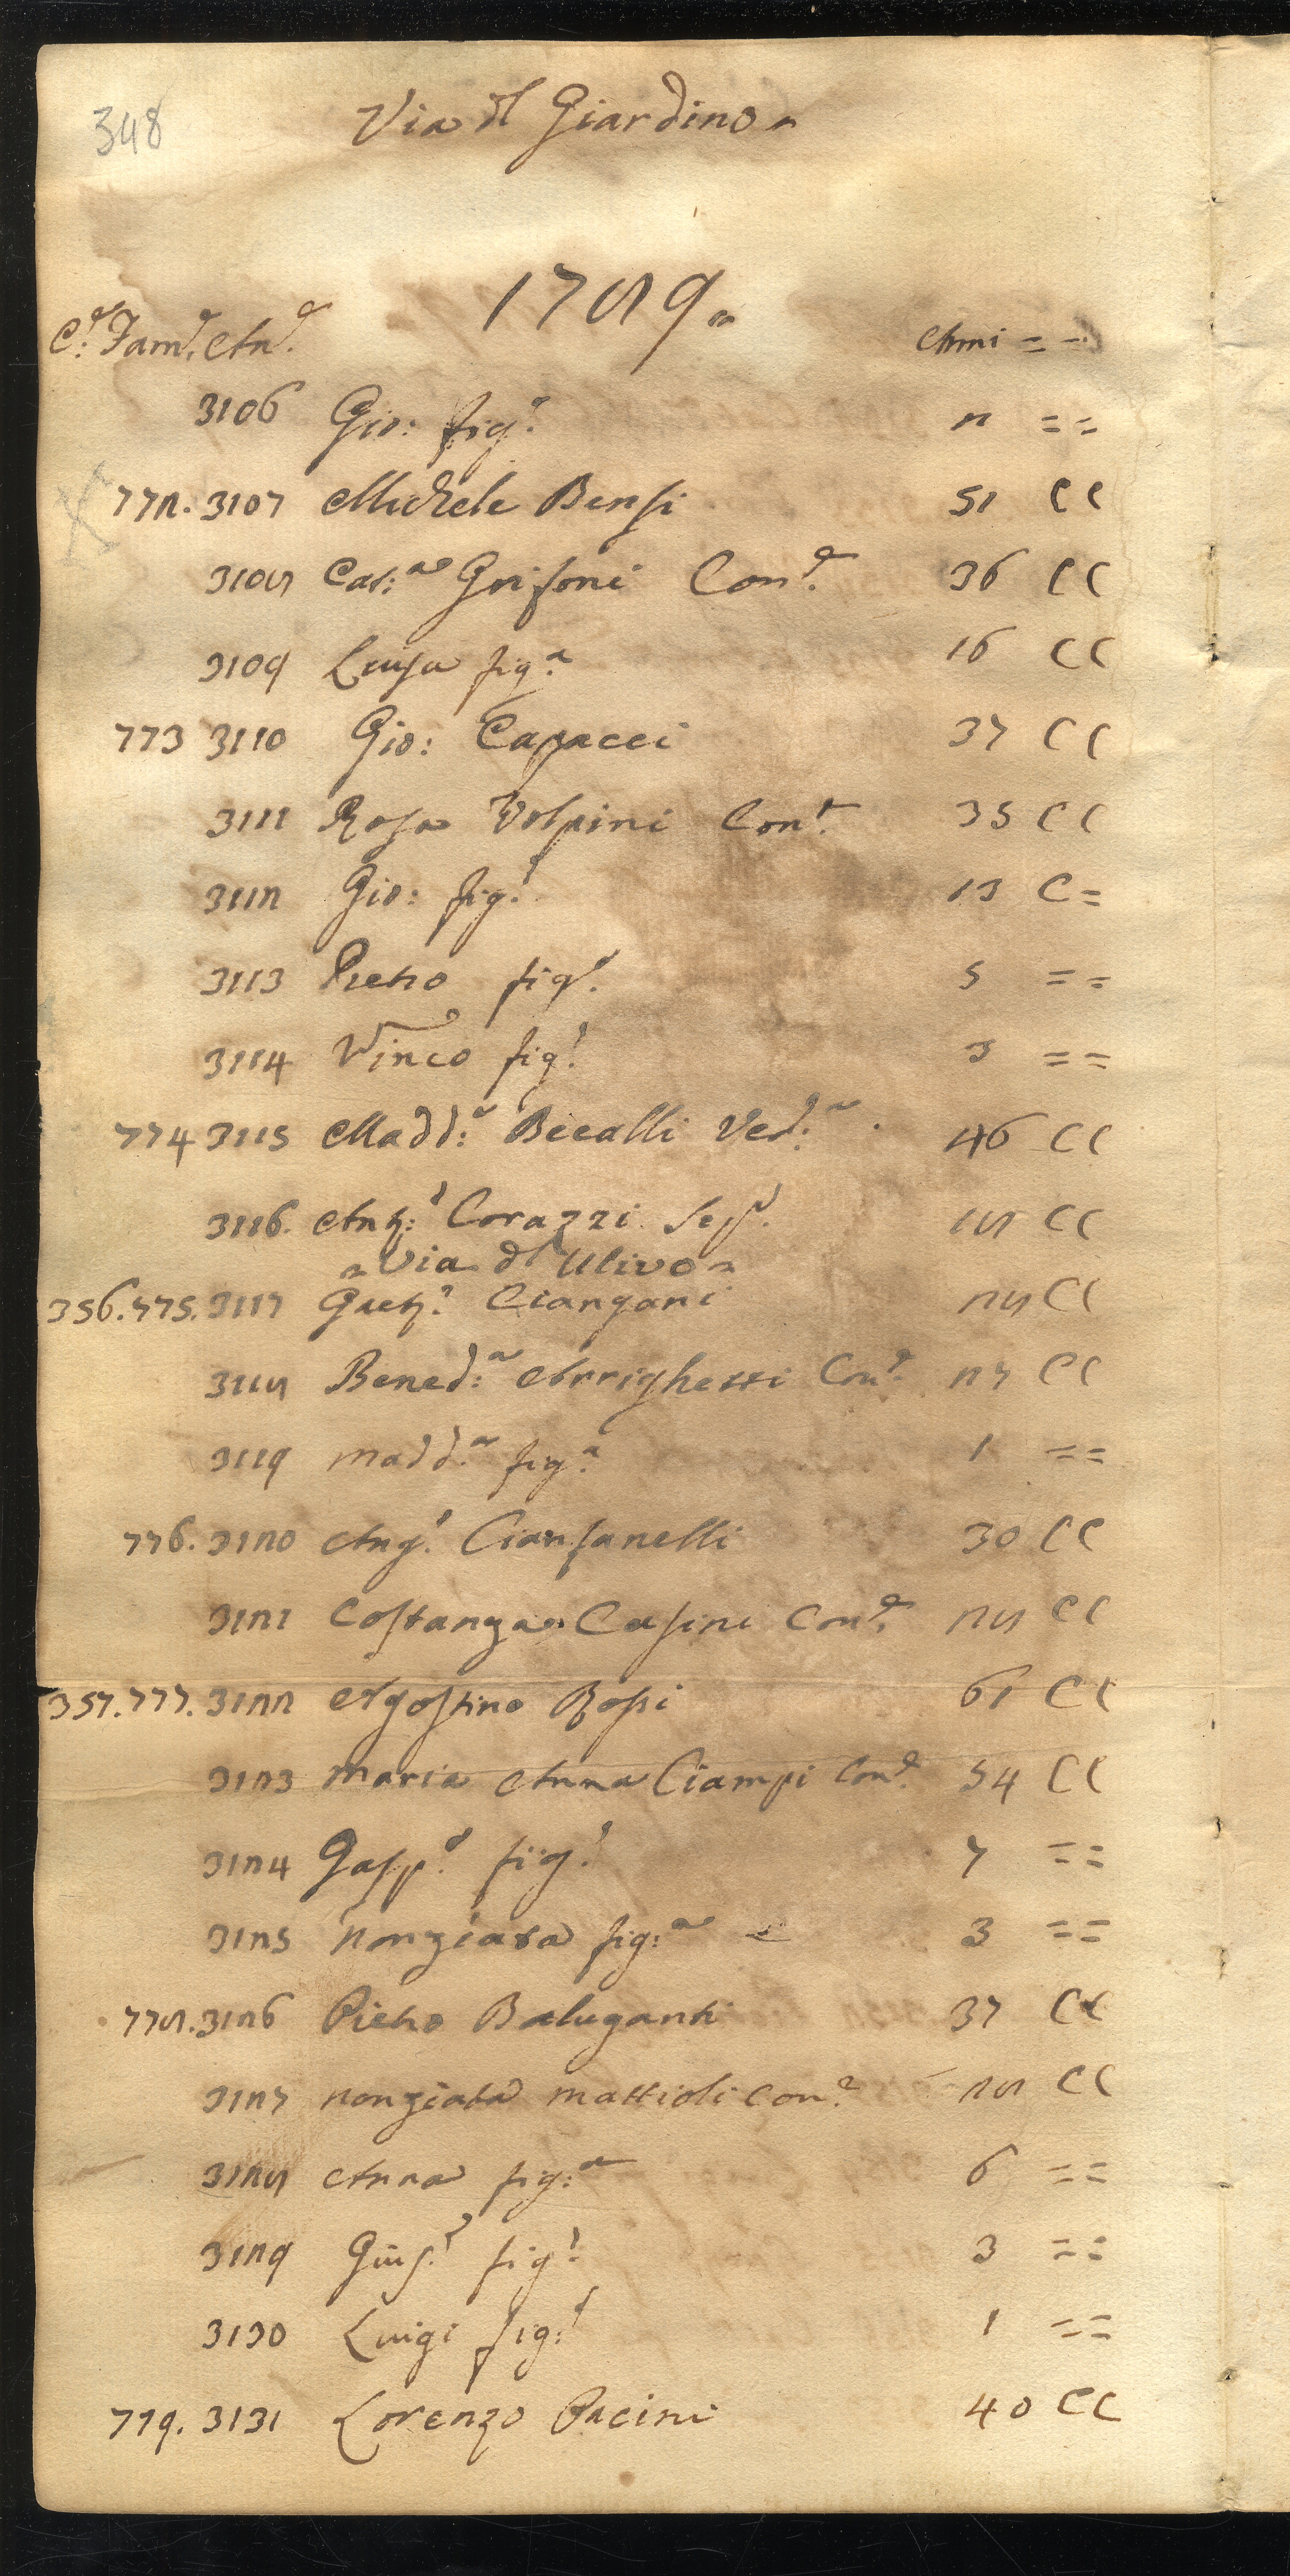 348
Via dl Giardino
1789.
C.e Fam.e An.e Anni = =
3106 Gio: fig.o 2 = =
772. 3107 Michele Bensi 51 C C
3108 Cat:a Grifoni Con.e 36 C C
3109 Luisa fig.a 16 C C
773 3110 Gio: Capacci 37 C C
3111 Rosa Volpini Con.e 35 C C
3112 Gio: fig.o 13 C =
3113 Pietro fig.o 5 = =
3114 Vinco fig.o 3 = =
774 3115 Madd:a Becalli Ved.a 46 C C
3116. Ant:o Corazzi 18 C C
Via dl Ulivo
356. 775. 3117 Gaet.o Ciangani 28 C C
3118 Bened:a Arrighetti Con.e 27 C C
3119 Madd.a fig.a 1 = =
776. 3120 Ang.o Cianfanelli 30 C C
3121 Costanza Casini Con.e 28 C C
357. 777. 3122 Agostino Rossi 61 C C
3123 Maria Anna Ciampi Con.e 54 C C
3124 Gasp.o fig.o 7 = =
3125 Nonziata fig:a 3 = =
778. 3126 Pietro Baluganti 37 C C
3127 Nonziata Mattioli Con.e 28 C C
3128 Anna fig:a 6 = =
3129 Gius.e fig.o 3 = =
3130 Luigi fig:o 1 = =
779. 3131 Lorenzo Pacini 40 C C